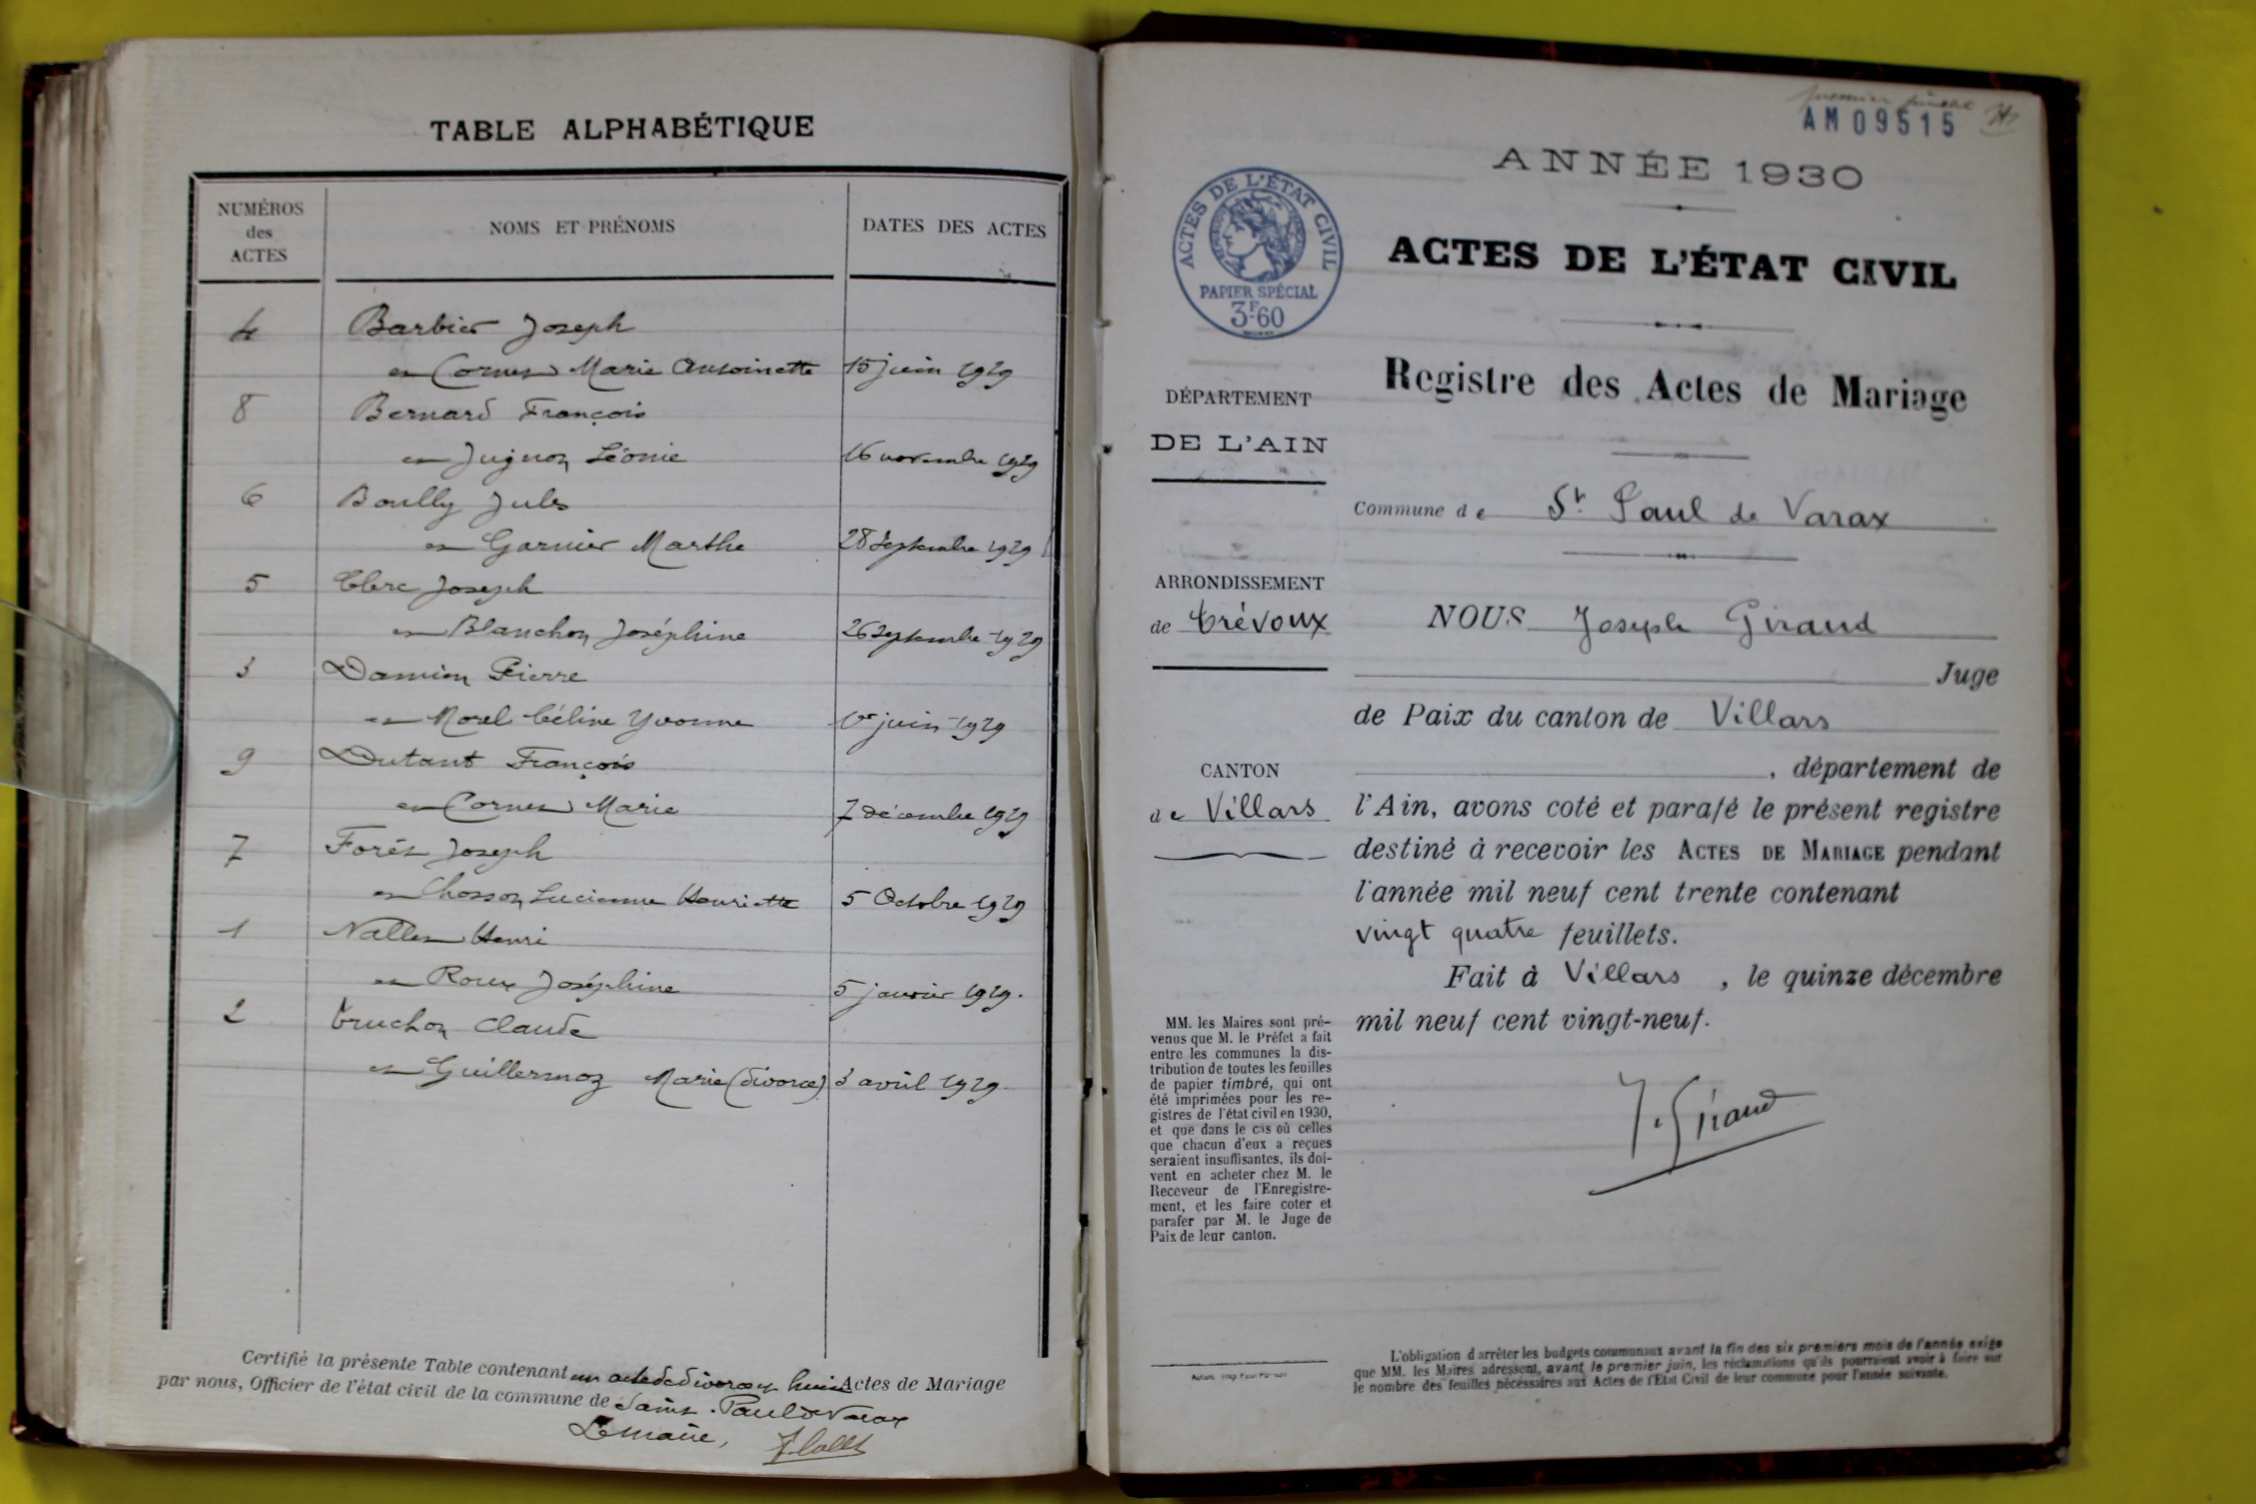 TABLE ALPHABÉTIQUE
NUMÉROS des ACTES
NOMS ET PRÉNOMS
DATES DES ACTES
4 Barbier Joseph
et Cornes Marie Antoinette 15 juin 1929
8 Bernard François
et Jugnon Léonie 16 novembre 1929
6 Boully Jules
et Garnier Marthe 28 septembre 1929
5 Clerc Joseph
et Blanchon Joséphine 26 septembre 1929
3 Damien Pierre
et Morel Céline Yvonne 1er juin 1929
9 Dutant François
et Cornes Marie 7 décembre 1929
7 Forêt Joseph
et Chosson Lucienne Henriette 5 Octobre 1929
1 Nallet Henri
et Roux Joséphine 5 janvier 1929.
2 Truchon Claude
et Guillermoz Marie (divorce) 3 avril 1929
Certifié la présente Table contenant un acte de divorce et huit Actes de Mariage
par nous, Officier de l'état civil de la commune de Saint-Paul de Varax
Le maire,
AM09515
ANNÉE 1930
ACTES DE L'ÉTAT CIVIL
PAPIER SPÉCIAL
3F60
ACTES DE L'ÉTAT CIVIL
Registre des Actes de Mariage
DÉPARTEMENT
DE L'AIN
Commune de St Paul de Varax
ARRONDISSEMENT
de Trévoux
NOUS Joseph Giraud
Juge
de Paix du canton de Villars
CANTON
de Villars
, département de
l'Ain, avons coté et parafé le présent registre
destiné à recevoir les ACTES DE MARIAGE pendant
l'année mil neuf cent trente contenant
vingt quatre feuillets.
Fait à Villars , le quinze décembre
mil neuf cent vingt-neuf.
J. Giraud
MM. les Maires sont pré-
venus que M. le Préfet a fait
entre les communes la dis-
tribution de toutes les feuilles
de papier timbré, qui ont
été imprimées pour les re-
gistres de l'état civil en 1930,
et que dans le cas où celles
que chacun d'eux a reçues
seraient insuffisantes, ils doi-
vent en acheter chez M. le
Receveur de l'Enregistre-
ment, et les faire coter et
parafer par M. le Juge de
Paix de leur canton.
L'obligation d'arrêter les budgets communaux avant la fin des six premiers mois de l'année exige
que MM. les Maires adressent, avant le premier juin, les réclamations qu'ils pourraient avoir à faire sur
le nombre des feuilles nécessaires aux Actes de l'Etat Civil de leur commune pour l'année suivante.